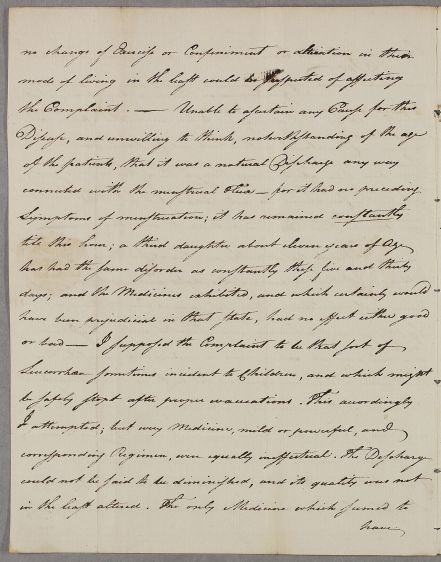 no change of Exercise or Confinement or alteration in their
mode of living in the least could be suspected of affecting
the Complaint. — Unable to ascertain any Cause for this
Disease, and unwilling to think, notwithstanding of the age
of the patients, that it was a natural Discharge any way
connected with the menstrual Flux — for it had no preceding
Symptoms of menstruation; it has remained constantly
till this hour; a third daughter about eleven years of Age
has had the same disorder as constantly these five and thirty
days; and the Medicines exhibited, and which certainly would
have been prejudicial in that State, had no effect either good
or bad — I supposed the Complaint to be that sort of
Leucorrhœa sometimes incident to Children, and which might
be safely stopt after proper evacuations. This accordingly
I attempted; but every Medicine, mild or powerful, and
corresponding Regimen, were equally ineffectual. The Discharge
could not be said to be diminished, and its quality was not
in the least altered. The only Medicine which seemed to
have